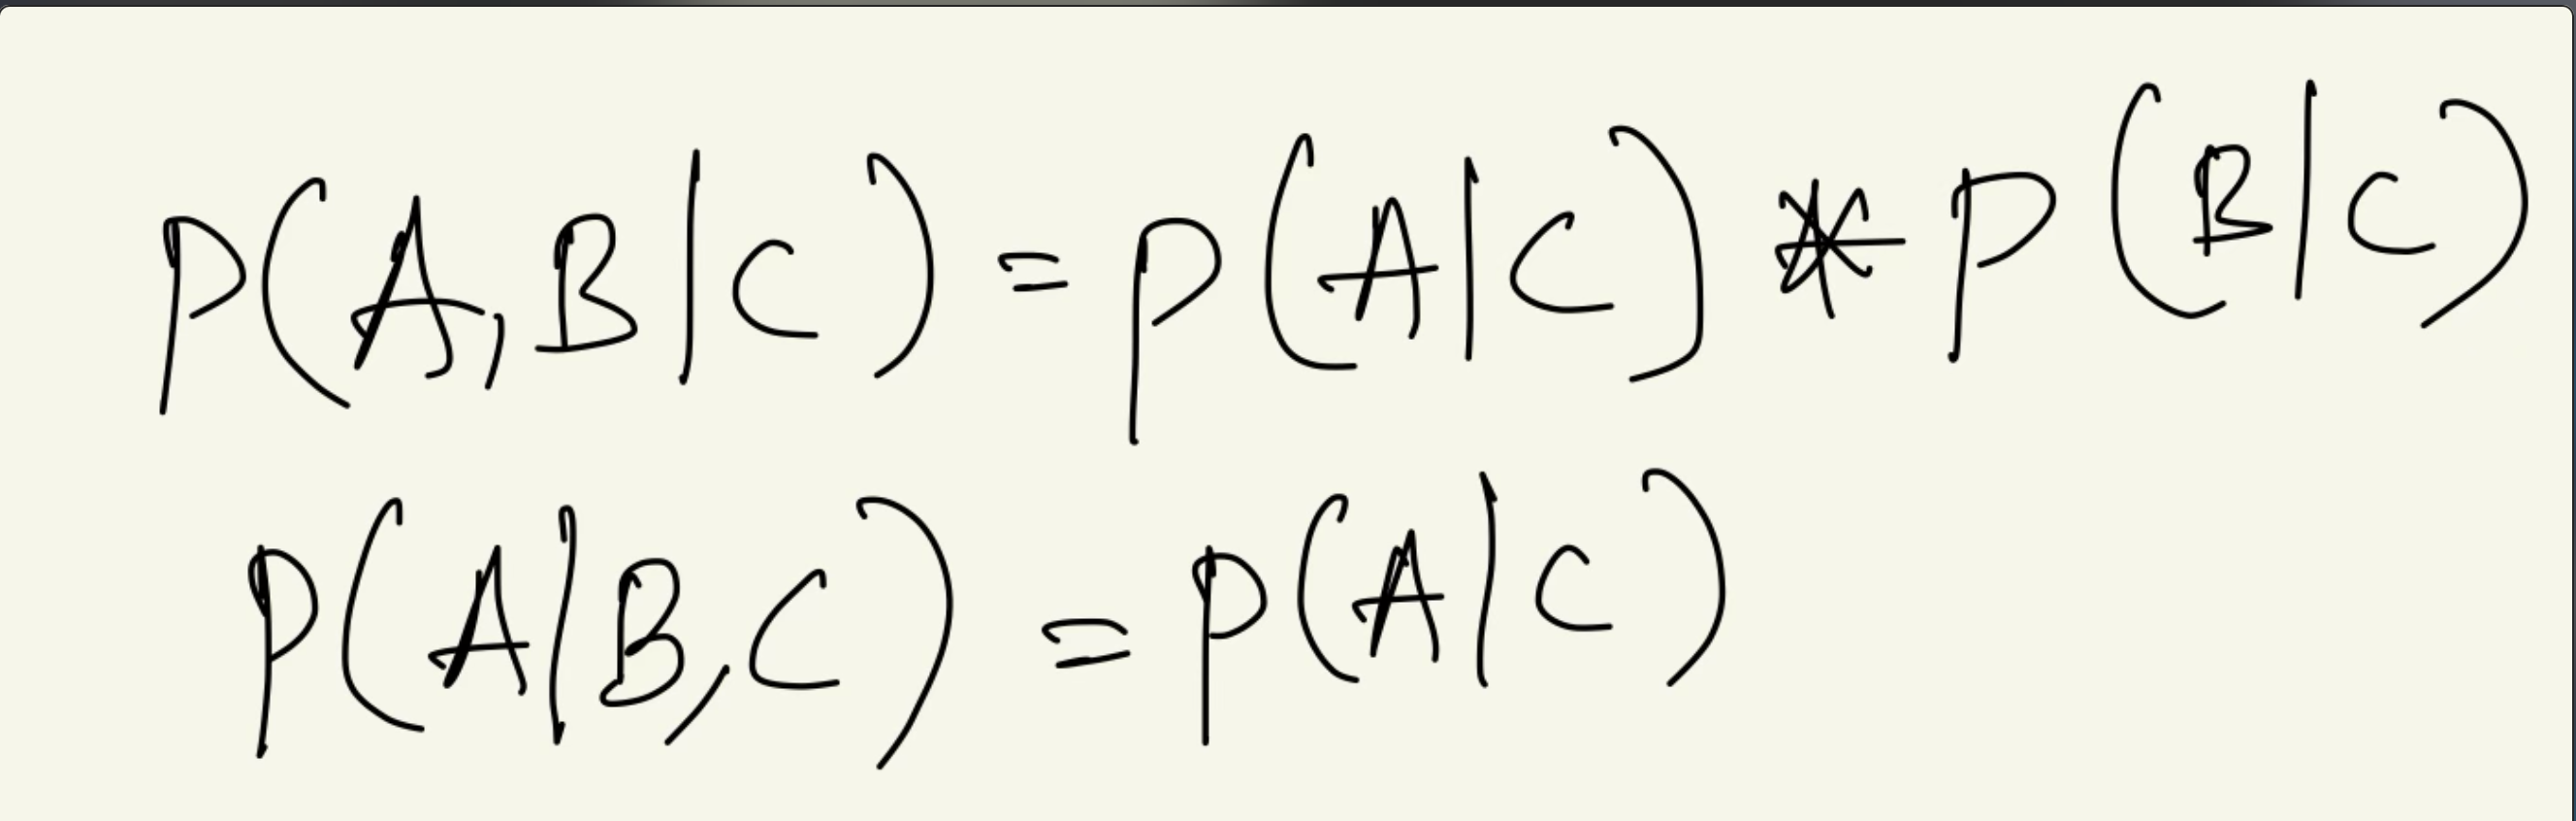 P(A,B|C) = P(A|C) * P(B|C)
P(A|B,C) = P(A|C)